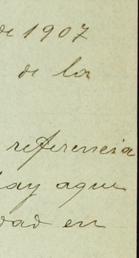 de 1907
de la
referencia
hay aque
dad en